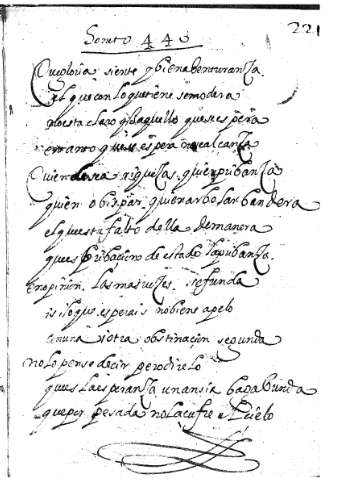 221
Soneto 440
Que gloria siente y bienabenturanza
el que con lo que tiene se modera
no esta claro q̃ daquello que se espera
en tanto que se espera no se alcanza
Quien desea riquezas, quien pribanza
quien obispar quien arbolar bandera
el que esta falto della de manera
que es pribaçion de estado la pribanza.
en opinion. las mas vezes. se funda
si lo que esperais no biene a pelo
a una otra obstinaçion segunda
no lo pense decir pero direlo
que es la esperanza un ansia bagabunda
que por pesada no la cufre el suelo